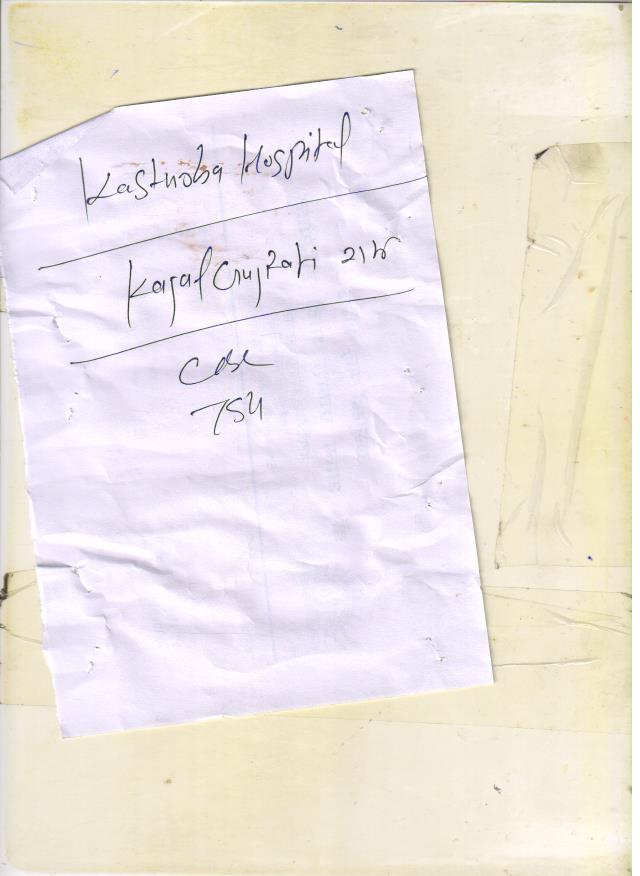 Kastuoba Hospital
Kajal Gujrati 21 yr
Case
754